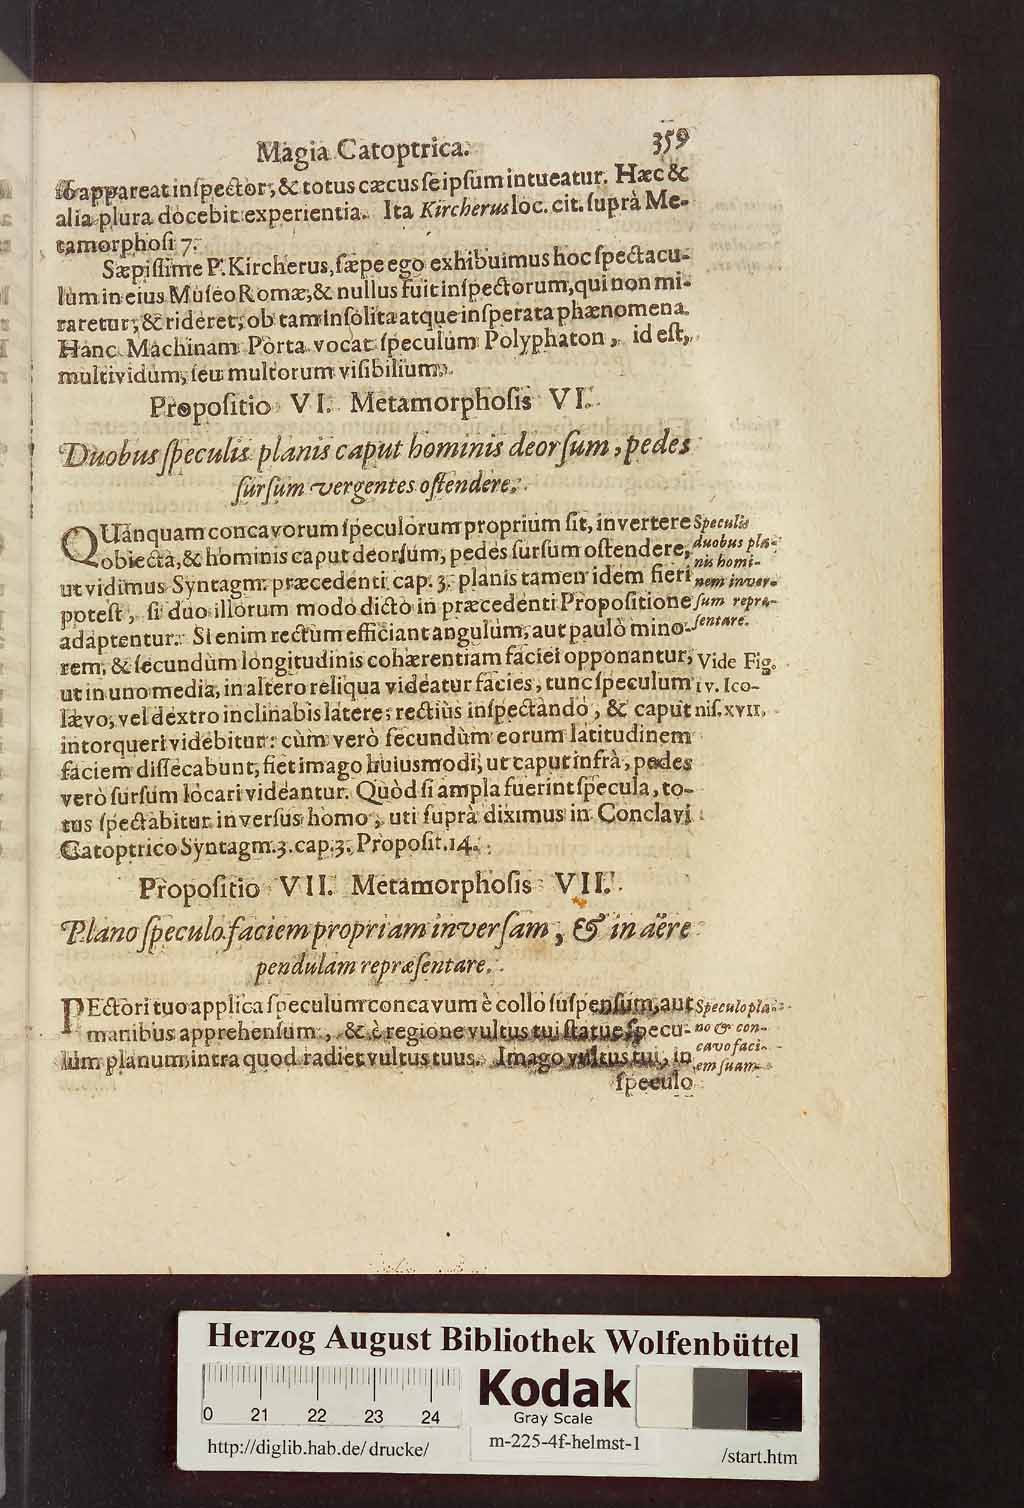 Magia Catoptrica. 359
appareat inſpector, & totus cæcus ſeipſum intueatur. Hæc &
alia plura docebit experientia. Ita Kircherus loc. cit. ſuprà Me-
tamorphoſi 7.
Sæpiſſime P. Kircherus, ſæpe ego exhibuimus hoc ſpectacu-
lum in eius Muſeo Romæ, & nullus fuit inſpectorum, qui non mi-
raretur, & rideret, ob tam inſolita atque inſperata phænomena.
Hanc Machinam Porta vocat ſpeculum Polyphaton, id eſt,
multividum, ſeu multorum viſibilium.
Propoſitio VI. Metamorphoſis VI.
Duobus ſpeculis planis caput hominis deorſum, pedes
ſurſum vergentes oſtendere.
QUanquam concavorum ſpeculorum proprium ſit, invertere
obiecta, & hominis caput deorſum, pedes ſurſum oſtendere,
ut vidimus Syntagm. præcedenti cap. 3. planis tamen idem fieri
poteſt, ſi duo illorum modo dicto in præcedenti Propoſitione
adaptentur. Si enim rectum efficiant angulum, aut paulò mino-
rem, & ſecundùm longitudinis cohærentiam faciei opponantur,
ut in uno media, in altero reliqua videatur facies, tunc ſpeculum
lævo, vel dextro inclinabis latere: rectiùs inſpectando, & caput
intorqueri videbitur: cùm verò ſecundùm eorum latitudinem
faciem diſſecabunt, fiet imago huiusmodi, ut caput infrà, pedes
verò ſurſum locari videantur. Quòd ſi ampla fuerint ſpecula, to-
tus ſpectabitur inverſus homo, uti ſuprà diximus in Conclavi
Catoptrico Syntagm. 3. cap. 3. Propoſit. 14.
Speculis
duobus pla-
nis homi-
nem inver-
ſum repræ-
ſentare.
Vide Fig.
iv. Ico-
niſ. xvii.
Propoſitio VII. Metamorphoſis VII.
Plano ſpeculo faciem propriam inverſam, & in aëre
pendulam repræſentare.
PEctori tuo applica ſpeculum concavum è collo ſuſpenſum, aut
manibus apprehenſum, & è regione vultus tui ſtatue ſpecu-
lum planum, intra quod radiet vultus tuus. Imago vultus tui, in
ſpeculo
Speculo pla-
no & con-
cavo faci-
em ſuam
Herzog August Bibliothek Wolfenbüttel
0 21 22 23 24
Kodak
Gray Scale
http://diglib.hab.de/drucke/ m-225-4f-helmst-1 /start.htm